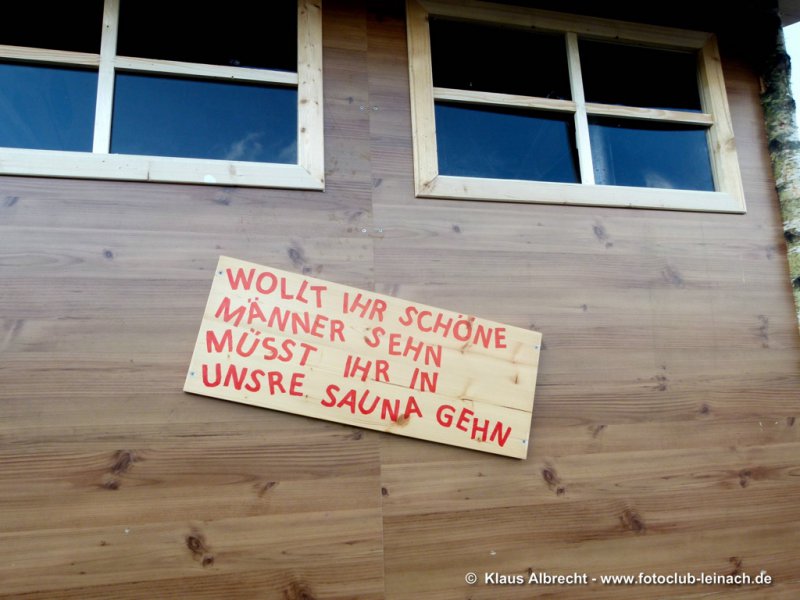 WOLLT IHR SCHÖNE
MÄNNER SEHN
MÜSST IHR IN
UNSRE SAUNA GEHN
© Klaus Albrecht - www.fotoclub-leinach.de